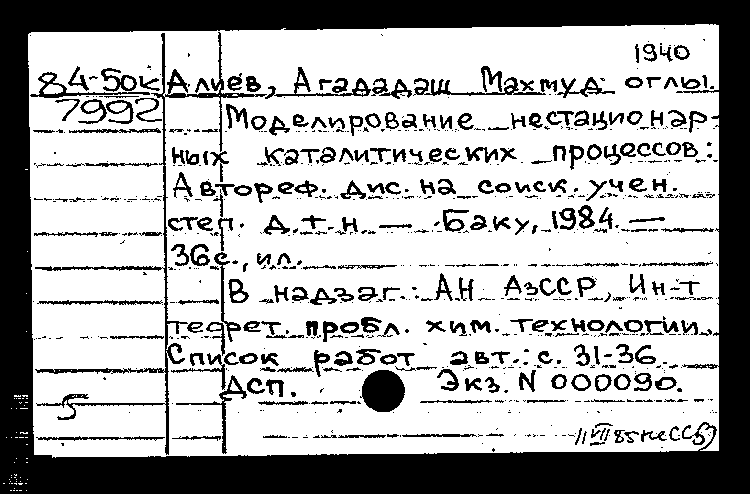 1940
84-50к Алиев, Агададаш Махмуд оглы.
7992
Моделирование нестационар-
ных каталитических процессов:
Автореф. дис. на соиск. учен.
степ. д.т.н. — Баку, 1984. —
36с., ил.
В надзаг.: АН АзССР, Ин-т
теорет. пробл. хим. технологии.
Список работ авт.: с. 31-36.
ДСП. Экз. N 000090.
5